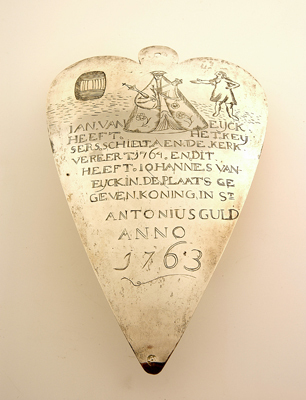 IAN. VAN EUCK.
HEEFT. HET. KEY
SERS. SCHILT. AEN. DE. KERK
VEREERT. 1761. EN. DIT.
HEEFT. IOHANNES VAN-
EUCK. IN. DE. PLAATS GE
GEVEN. KONING, IN ST
ANTONIUS GULD
ANNO
1763